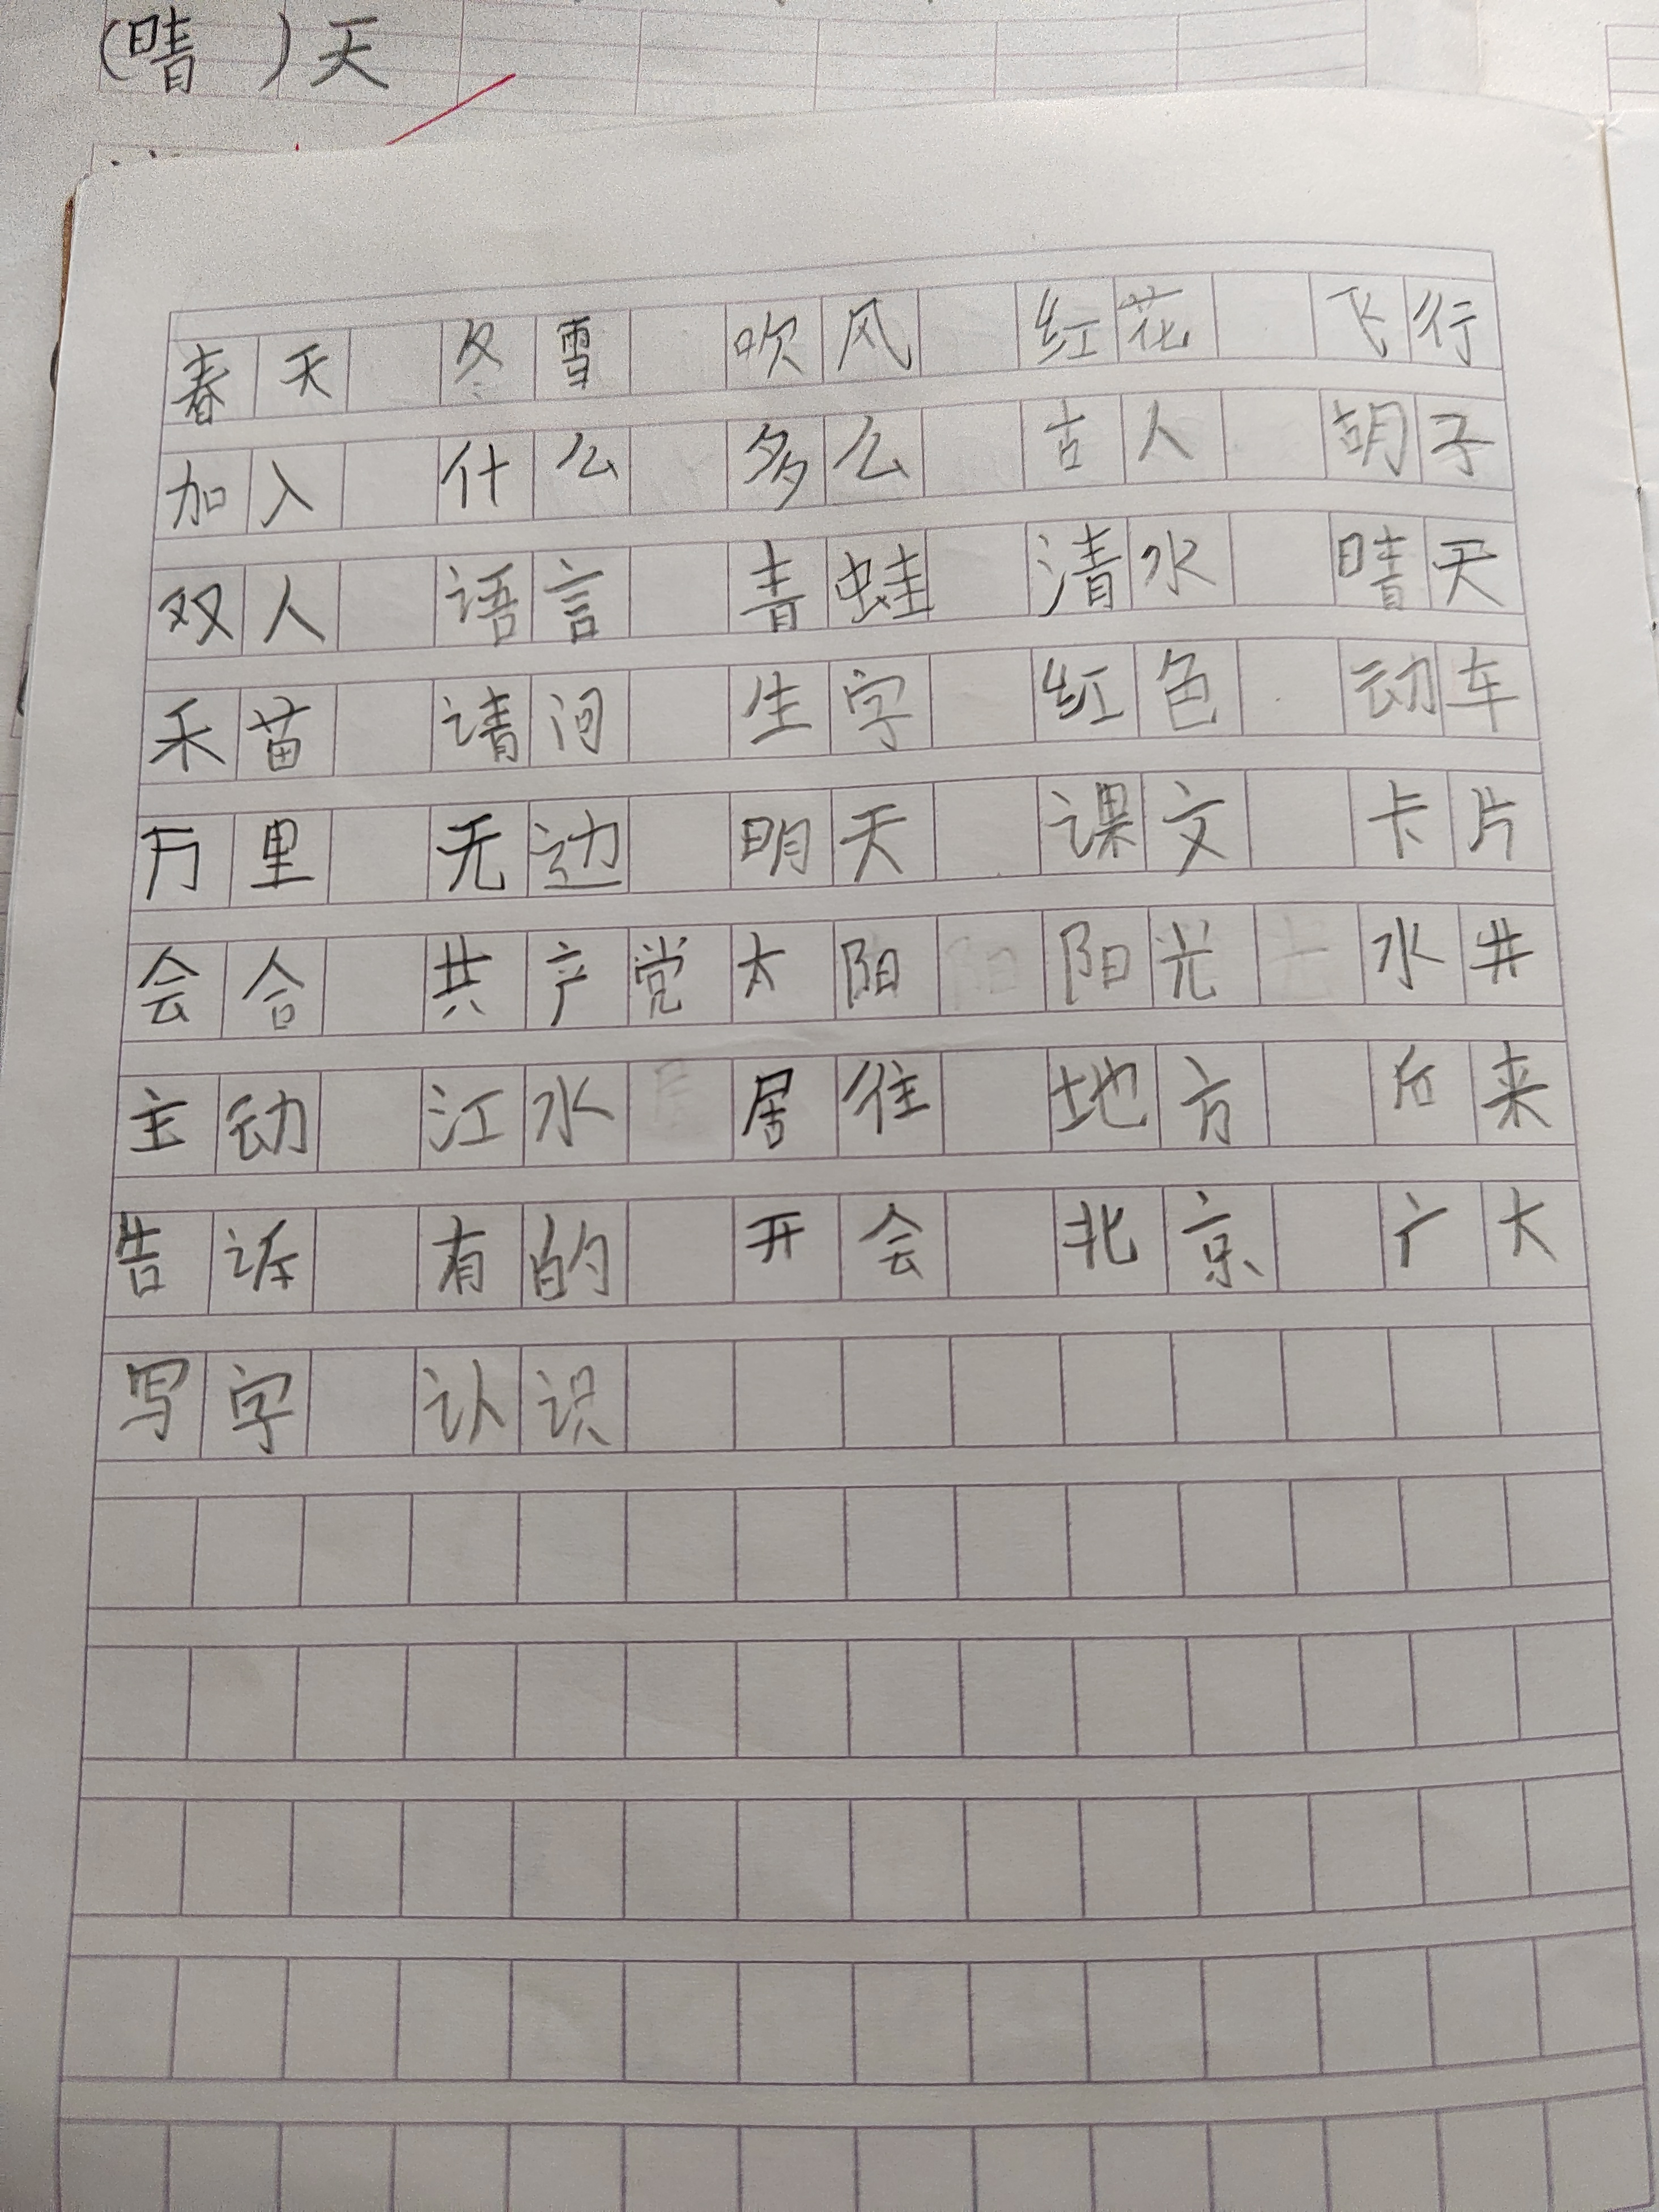 (晴 )天
春天 冬雪 吹风 红花 飞行
加入 什么 多么 古人 胡子
双人 语言 青蛙 清水 晴天
禾苗 请问 生字 红色 动车
万里 无边 明天 课文 卡片
会合 共产党太阳 阳光 水井
主动 江水 居住 地方 后来
告诉 有的 开会 北京 广大
写字 认识